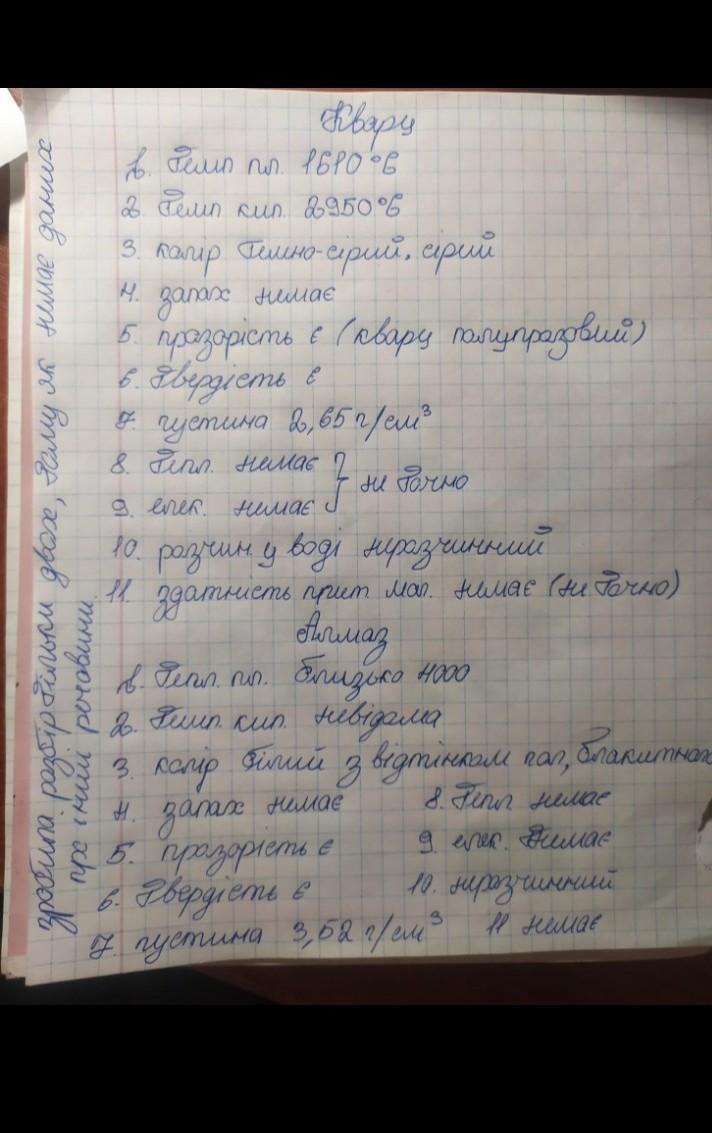 Кварц
1. Темп пл. 1610°С
2. Темп кип. 2950°С
3. колір темно-сірий, сірий
4. запах немає
5. прозорість є (кварц полупрозовий)
6. Твердість є
7. густина 2,65 г/см³
8. Тепл. немає } не точно
9. елек. немає
10. розчин. у воді нерозчинний
11. здатність прит. маг. немає (не точно)
Алмаз
1. Тепл. пл. близько 4000
2. Темп. кип. невідома
3. колір білий з відтінком гол, блакитного
4. запах немає 8. Тепл немає
5. прозорість є 9. елек. немає
6. Твердість є 10. нерозчинний
7. густина 3,52 г/см³ 11 немає
зробила розбір тільки двох, тому як немає даних
про інші речовини.